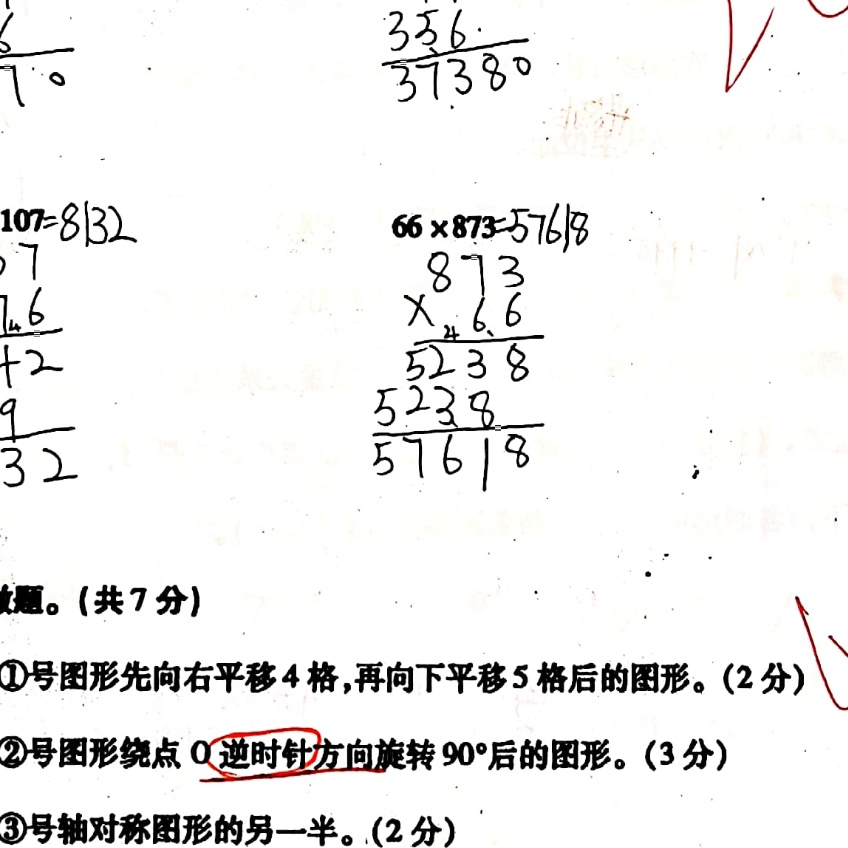 6 356
70 37380
107=8132 66×873=57618
57 873
76 ×66
42 5238
9 5238
32 57618
做题。(共7分)
①号图形先向右平移4格,再向下平移5格后的图形。(2分)
②号图形绕点O逆时针方向旋转90°后的图形。(3分)
③号轴对称图形的另一半。(2分)